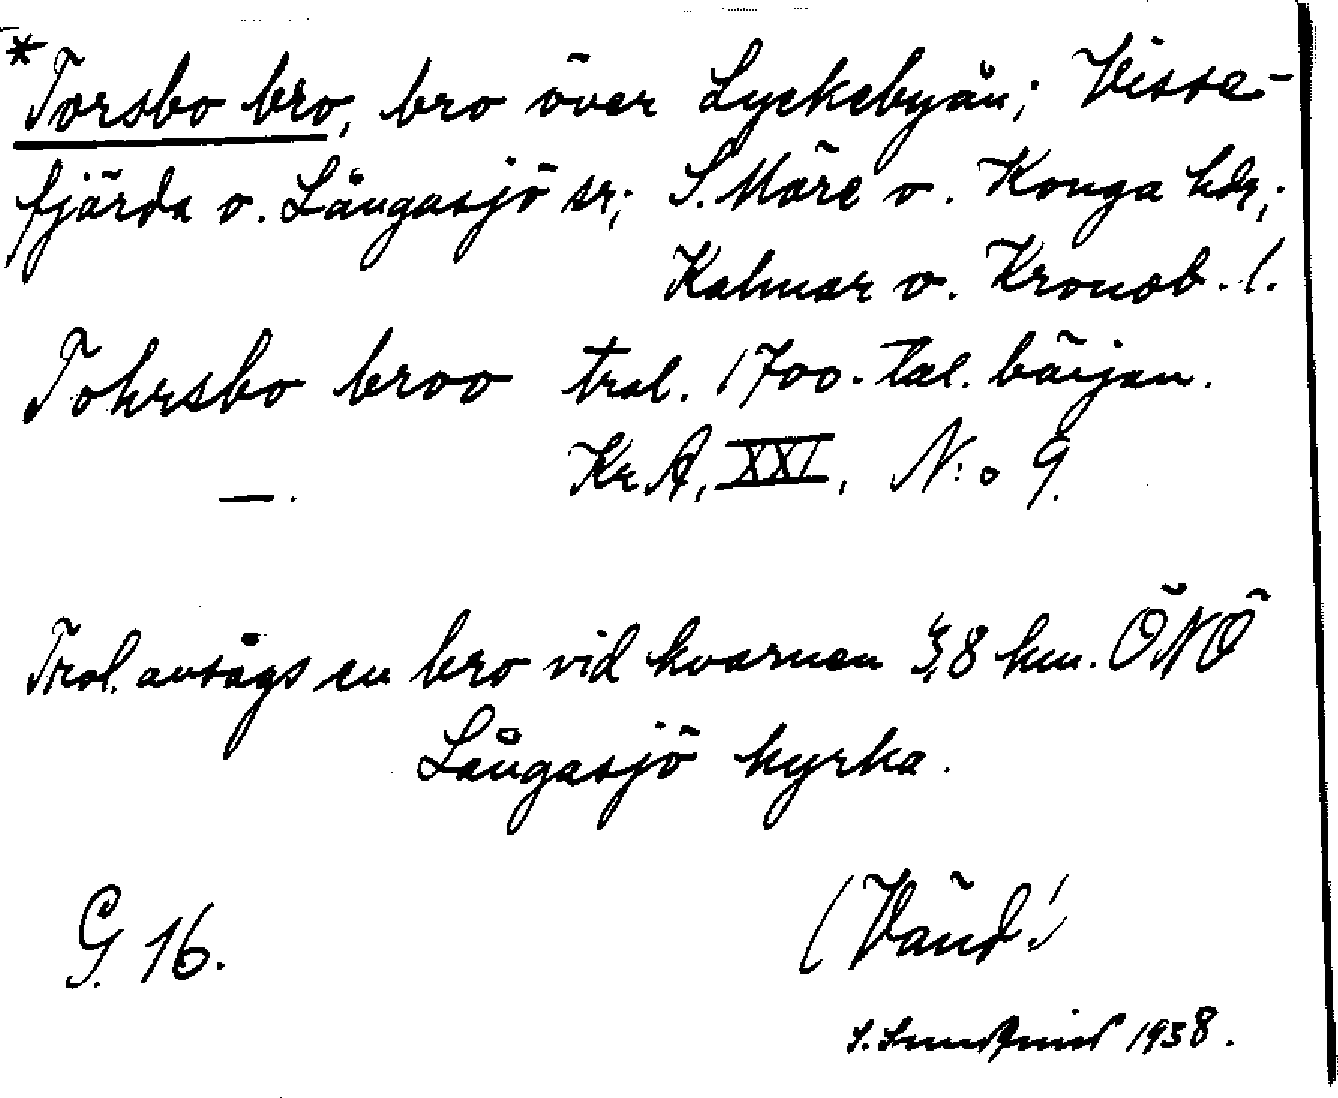 *Torsbo bro, bro över Lyckebyån; Visse-
fjärda o. Långasjö sr; S. Möre o. Konga hdr;
Kalmar o. Kronob. l.
Tohrsbo broo trol. 1700-tal. början.
Kr A, XXI, N:o 9.
—.
Trol. avsågs en bro vid kvarnen 3,8 km. ÖNÖ
Långasjö kyrka.
G. 16.
(Vänd!
1938.